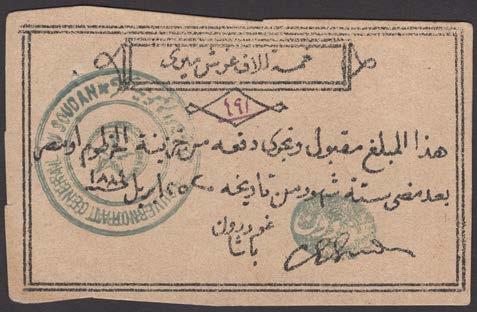 خمسة آلاف غرش ميري
٤٩١
هذا المبلغ مقبول ويجرى دفعه من خزينة الخرطوم او مصر
بعد مضى ستة شهور من تاريخه ٢٥ ابريل ١٨٨٤
غوردون
باشا
GOUVERNORAT GENERAL DU SOUDAN